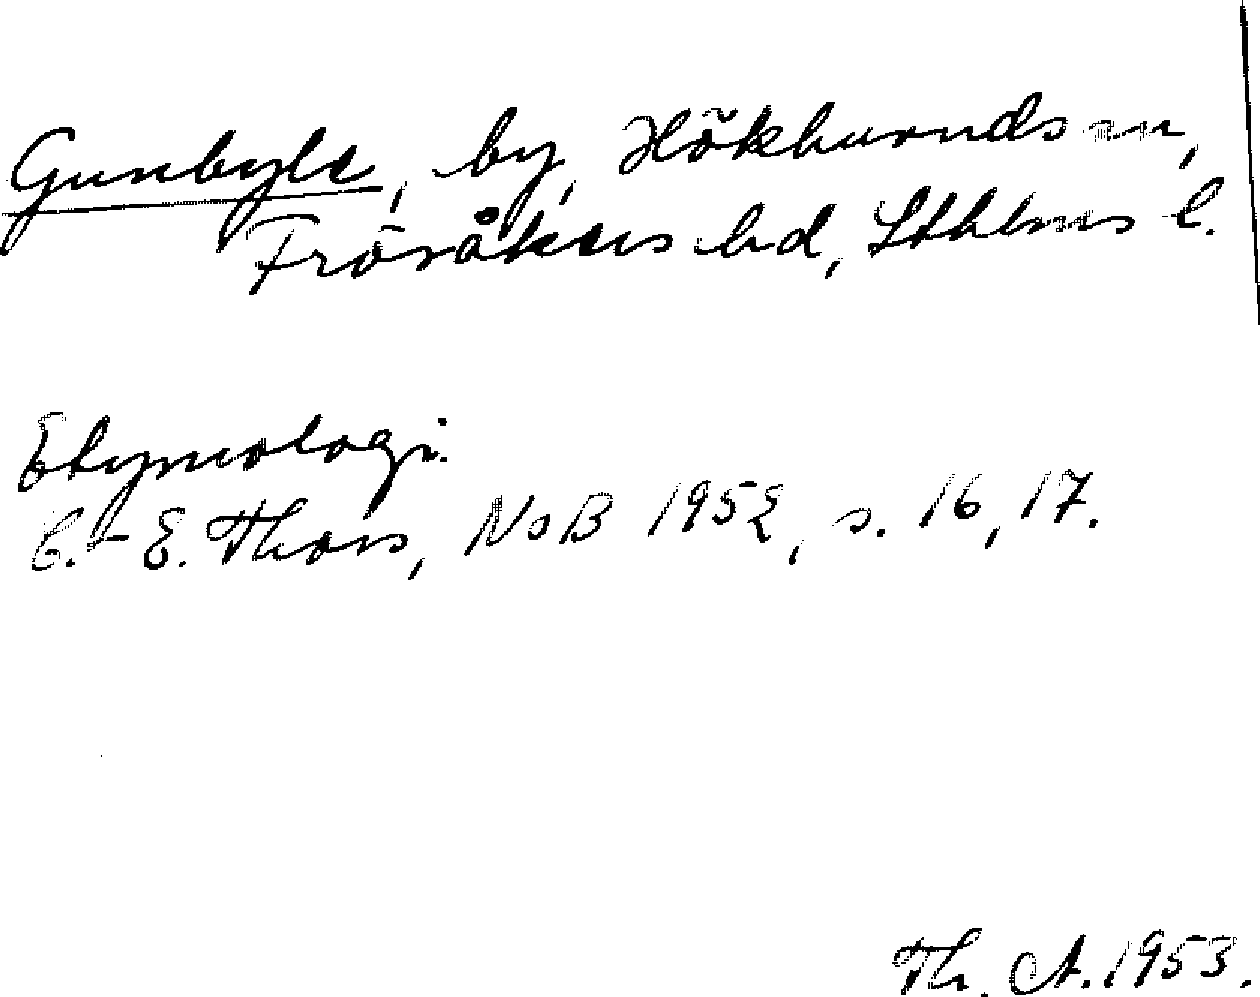 Gunbyle, by, Hökhuvuds sn,
Frösåkers hd, Sthlms l.
Etymologi.
C.-E. Thors, NoB 1952, s. 16, 17.
Th. A. 1953.